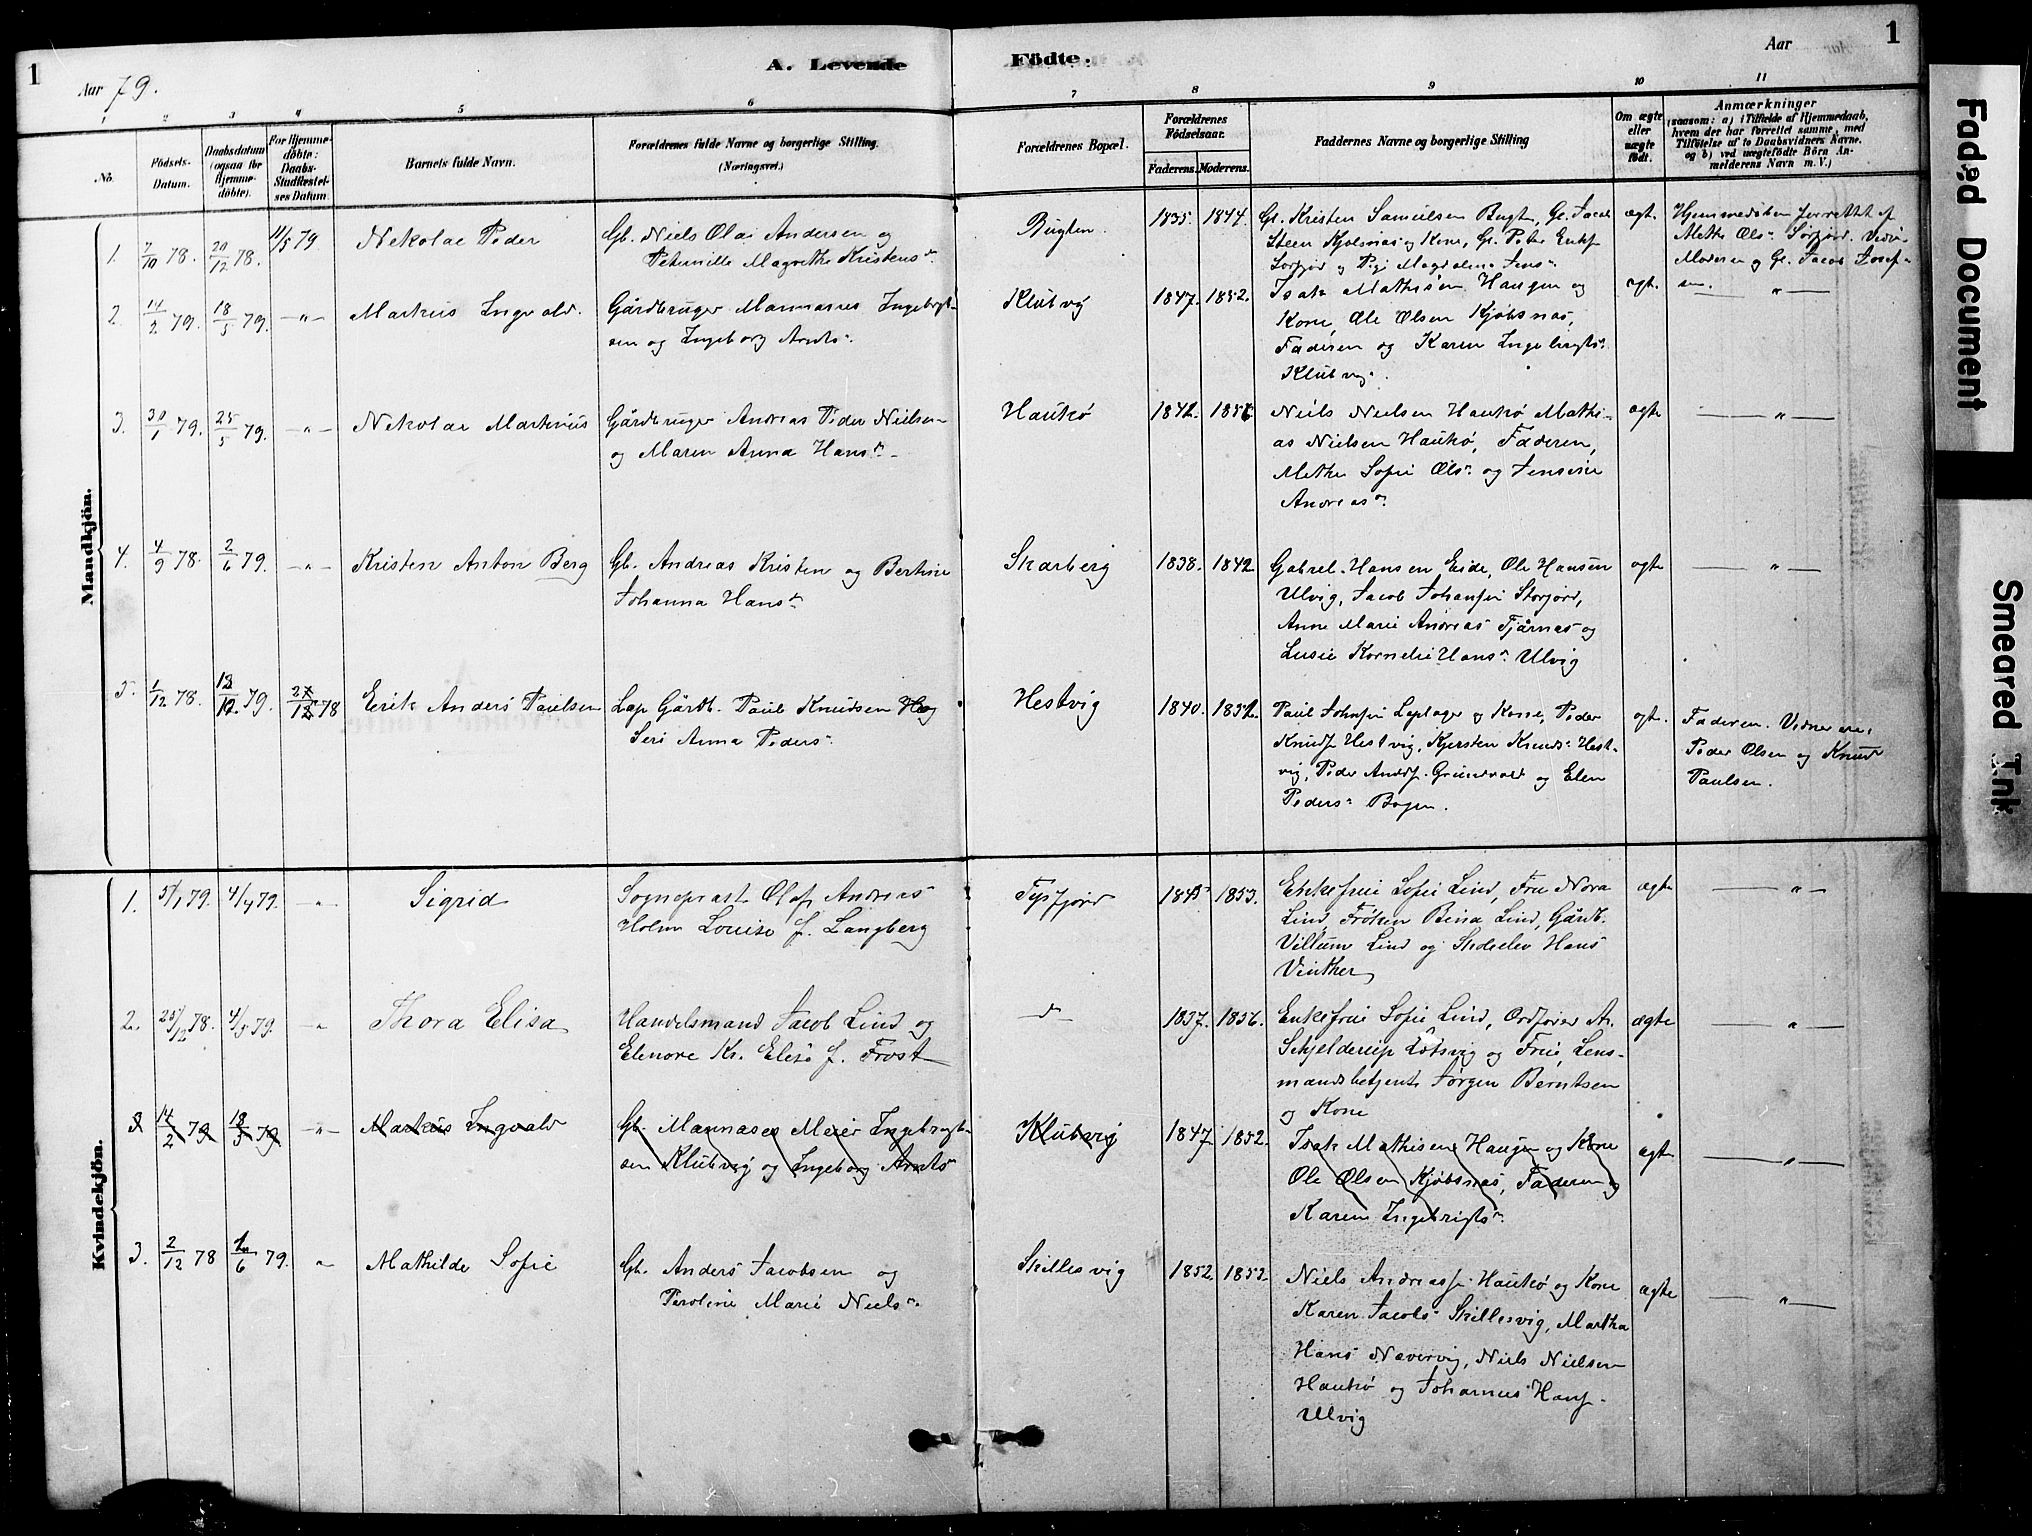 1
Aar 79.
A. Levende
Födte.
Aar
1
1 2 3 4 5 6 7 8 9 10 11
No.
Födsels-
Datum.
Daabsdatum
(ogsaa for
Hjemme-
döbte).
For Hjemme-
döbte:
Daabs-
Stadfæstel-
ses Datum
Barnets fulde Navn.
Forældrenes fulde Navne og borgerlige Stilling
(Næringsvei.)
Forældrenes Bopæl.
Forældrenes
Födselsaar.
Faderens. Moderens.
Faddernes Navne og borgerlige Stilling
Om ægte
eller
uægte
födt.
Anmærkninger
(saasom: a) i Tilfælde af Hjemmedaab,
hvem der har forrettet samme, med
Tilföielse af to Daabsvidners Navne.
og b) ved uægtefödte Börn An-
melderens Navn m. V.)
Mandkjön.
1. 7/10 78. 20/12 78. 11/5 79. Nekolai Peder
Gb. Niels Olai Andersen og
Peternille Magrethe Kristens d.
Bugten. 1835. 1844.
Gl. Kristen Samuelsen Bugt, Gl. Jacob
Steen Kjelsnas og Kone, Gl. Peter Eriks
Sorfjord og Pige Magdalena Jens d.
ægt.
Hjemmedöben forrettet af
Mette Ols d. Sorfjord. Vidner
Moderen og Gl. Jacob Josef-
sen.
2 14/2 79. 18/5 79. —"— Markus Ingvald.
Gårdbruger Mannases Ingebrigt-
sen og Ingeborg Arnts d.
Klubvig 1847. 1852.
Isak Mathisen Haugen og
Kone, Ole Olsen Kjöbsnas,
Faderen og Karen Ingebrigts d.
Klubvig.
ægt. —"—
3. 30/1 79. 25/5 79. —"— Nekolai Markinus
Gårdbruger Andreas Peder Nielsen
og Maren Anna Hans d.
Haukö 1842. 1851
Niels Nielsen Haukö Mathi-
as Nielsen Haukö, Faderen,
Methe Sofie Ols d. og Jensine
Andreas d.
ægte —"—
4. 4/9 78. 2/6 79. —"— Kristen Anton Berg
Gb. Andreas Kristen og Bertine
Johanna Hans d.
Skarberg 1838. 1842
Gabrel Hansen Eide, Ole Hansen
Ulvig, Jacob Johansen Storjord,
Anne Marie Andreas Tjårnas og
Lusie Kornelie Hans d. Ulvig
ægte —"—
5. 1/12 78. 79. 78 Erik Anders Paulsen
Lap Gårdb. Paul Knudsen og
Seri Anna Peders d.
Hestvig 1840.
Paul Johnsen Leplager og Kone, Peder
Knuds Hestvig, Kjersten Knuds d. Hest-
vig, Peder Andrs. Grundvald og Elen
Peders d. Bogen.
ægt.
Faderen. Vidnere
Peder Olsen og Knud
Paulsen.
Kvindekjön.
1. 5/1 79. 4/4 79. " Sigrid
Sogneprast Olaf Andreas
Holm Louise f. Langberg
Tysfjord 1845 1853.
Enkefrue Sofie Lind, Frue Nora
Lind, Fröken Bina Lind, Gårdb.
Villum Lind og Skoleelev Hans
Vinther
ægte —"—
2. 25/12 78. 4/5 79. " Thora Elisa
Handelsmand Jacob Lind og
Elenore Kr. Elise f. Frost
—"— 1837. 1856.
Enkefrue Sofie Lind, Ordförer A.
Schjelderup Lötsvig og Frue, Lens-
mandsbetjent Jörgen Berntsen
og Kone
ægte —"—
3 14/2 79 18/5 79 —"— Markus Ingvald
Gb. Mannases Meier Ingebrigt-
sen Klubvig og Ingeborg Arnts
Klubvig 1847 1852.
Isak Mathisen Haugen og Kone
Ole Olsen Kjöbsnas, Faderen og
Karen Ingebrigts d.
ægt —"—
3. 2/12 78 1/6 79. " Mathilde Sofie
Gb. Anders Jacobsen og
Peroline Marie Niels d.
Skillesvig 1852. 1852
Niels Andreass. Haukö og Kone
Karen Jacobs Skillesvig, Martha
Hans Nævervig, Niels Nielsen
Haukö og Johannes Hans.
Ulvig
ægte —"—
Faded Document
Smeared Ink